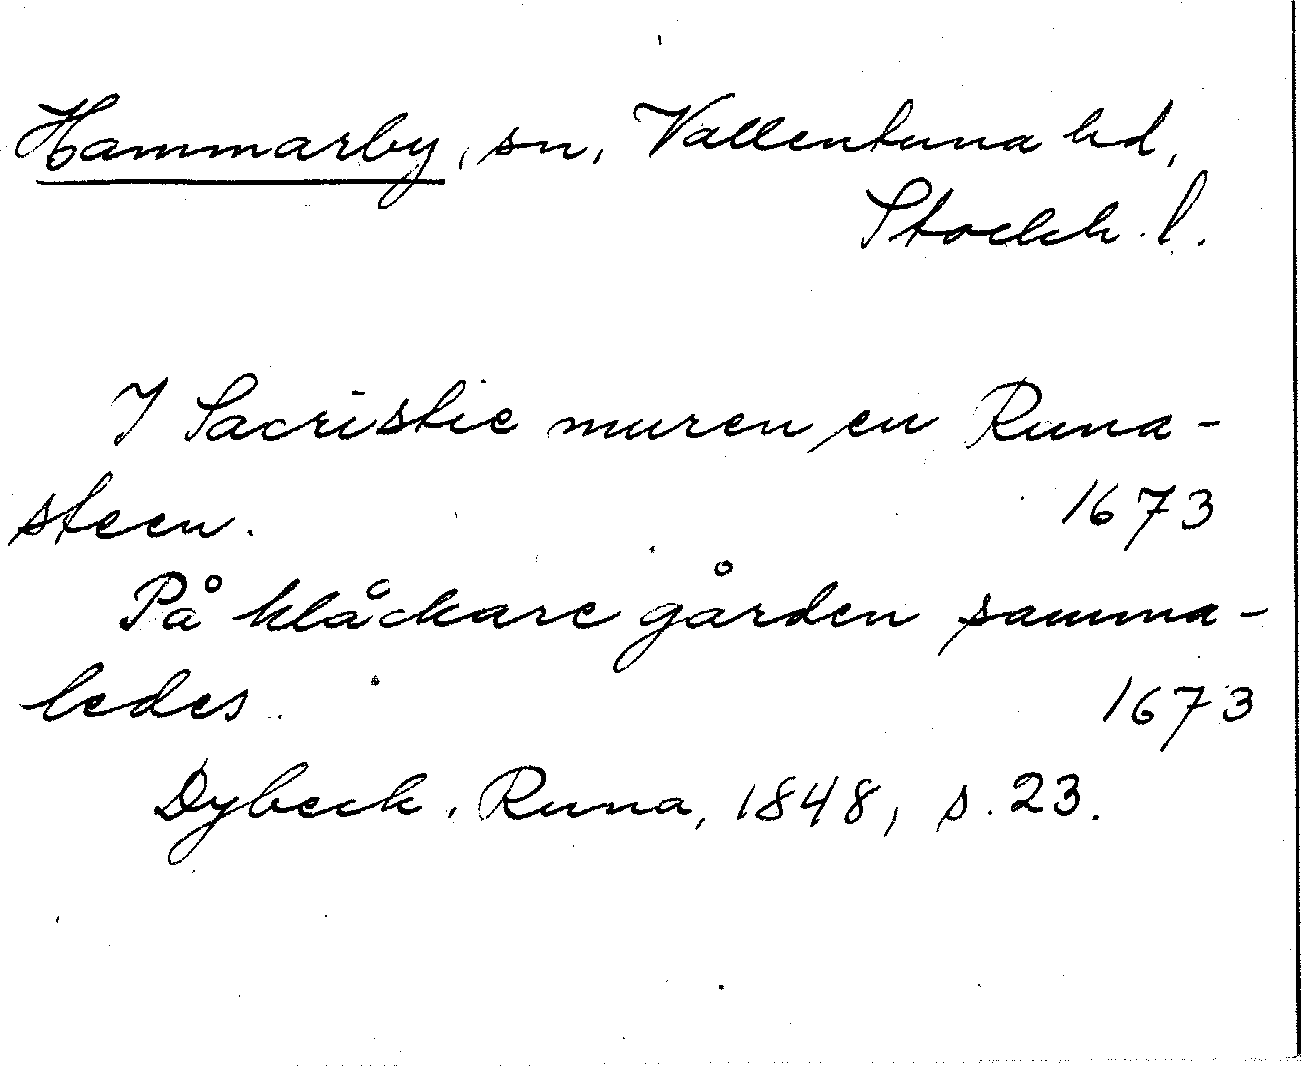 Hammarby, sn, Vallentuna hd,
Stockh. l.
I Sacristie muren en Runa-
steen. 1673
På klåckare gården samma-
ledes. 1673
Dybeck, Runa, 1848, s. 23.